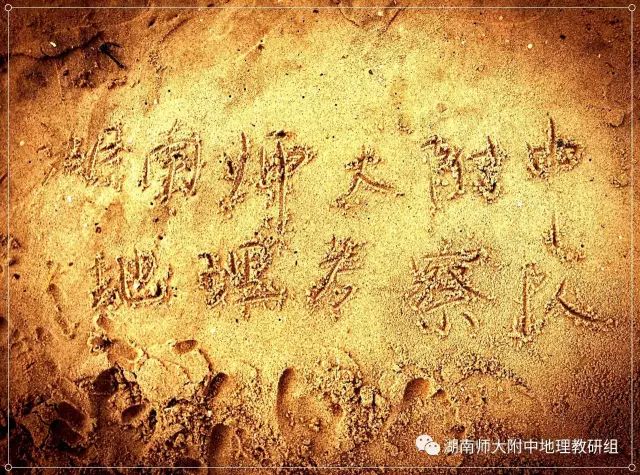 湖南师大附中
地理考察队
湖南师大附中地理教研组